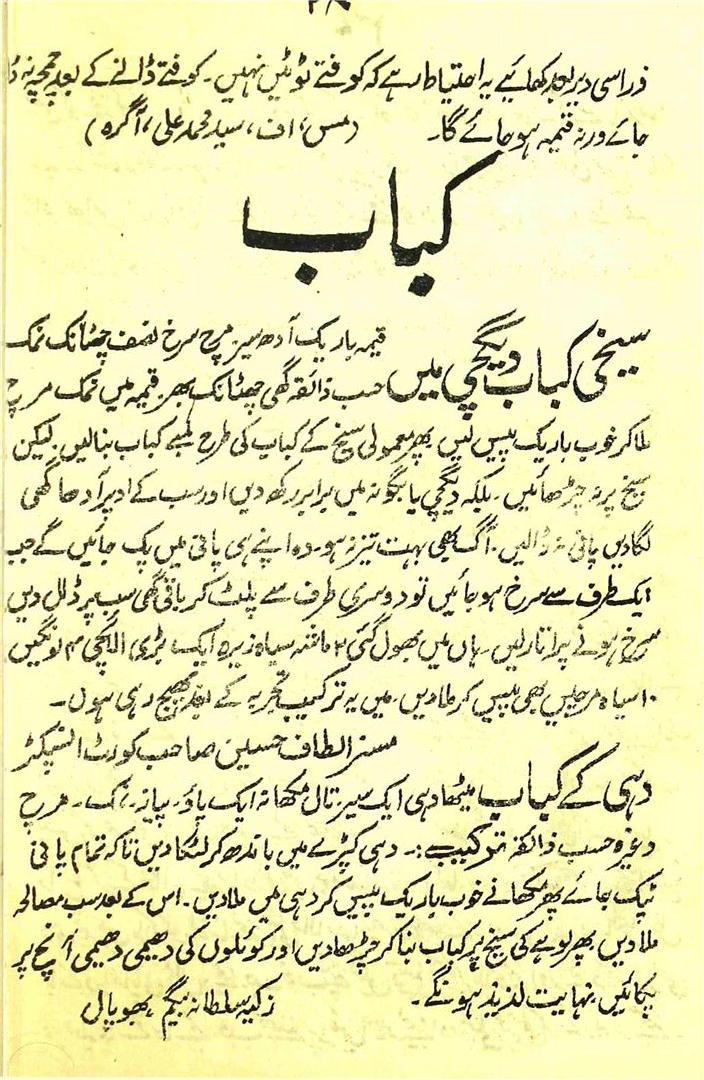 ذرا سی دیر بعد کھائیے یہ احتیاط رہے کہ کوفتے ٹوٹیں نہیں۔ کوفتے ڈالنے کے بعد چمچہ نہ
جائے ورنہ قیمہ ہو جائے گا۔ (مس، اف، سید محمد علی، آگرہ)
کباب
سیخی کباب دیگچی میں
قیمہ باریک آدھ سیر مرچ سرخ نصف چھٹانک نمک
حسب ذائقہ گھی چھٹانک بھر قیمہ میں نمک مرچ
ملا کر خوب باریک پیس لیں پھر معمولی سیخ کے کباب کی طرح لمبے کباب بنا لیں۔ لیکن
سیخ پر نہ چڑھائیں۔ بلکہ دیگچی یا بگونہ میں برابر رکھ دیں اور سب کے اوپر آدھا گھی
لگا دیں پانی نہ ڈالیں۔ آگ بھی بہت تیز نہ ہو۔ وہ اپنے ہی پانی میں پک جائیں گے جب
ایک طرف سے سرخ ہو جائیں تو دوسری طرف سے پلٹ کر باقی گھی سب پر ڈال دیں
سرخ ہونے پر اتار لیں۔ ہاں میں بھول گئی ۳ ماشہ سیاہ زیرہ ایک بڑی الائچی ۴ لونگیں
۱۰ سیاہ مرچیں بھی پیس کر ملا دیں۔ میں یہ ترکیب تجربہ کے بعد بھیج رہی ہوں۔
مسز الطاف حسین صاحب کورٹ انسپکٹر
دہی کے کباب میٹھا دہی ایک سیر تال مکھانہ ایک پاؤ۔ پیاز۔ نمک۔ مرچ
وغیرہ حسب ذائقہ ترکیب :۔ دہی کپڑے میں باندھ کر لٹکا دیں تاکہ تمام پانی
ٹپک جائے پھر مکھانے خوب باریک پیس کر دہی میں ملا دیں۔ اس کے بعد سب مصالحہ
ملا دیں پھر لوہے کی سیخ پر کباب بنا کر چڑھا دیں اور کوئلوں کی دھیمی دھیمی آنچ پر
پکائیں نہایت لذیذ ہونگے۔ زکیہ سلطانہ بیگم، بھوپال